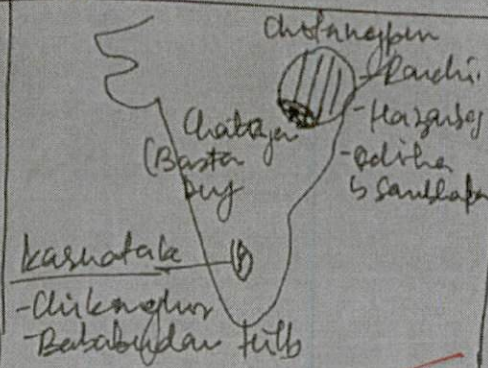 Chotanagpur
- Ranchi
- Hazaribag
- Odisha
↳ Sambhalpur
(Bastar
Karnataka
- Chikmaglur
- Bababudan Hills